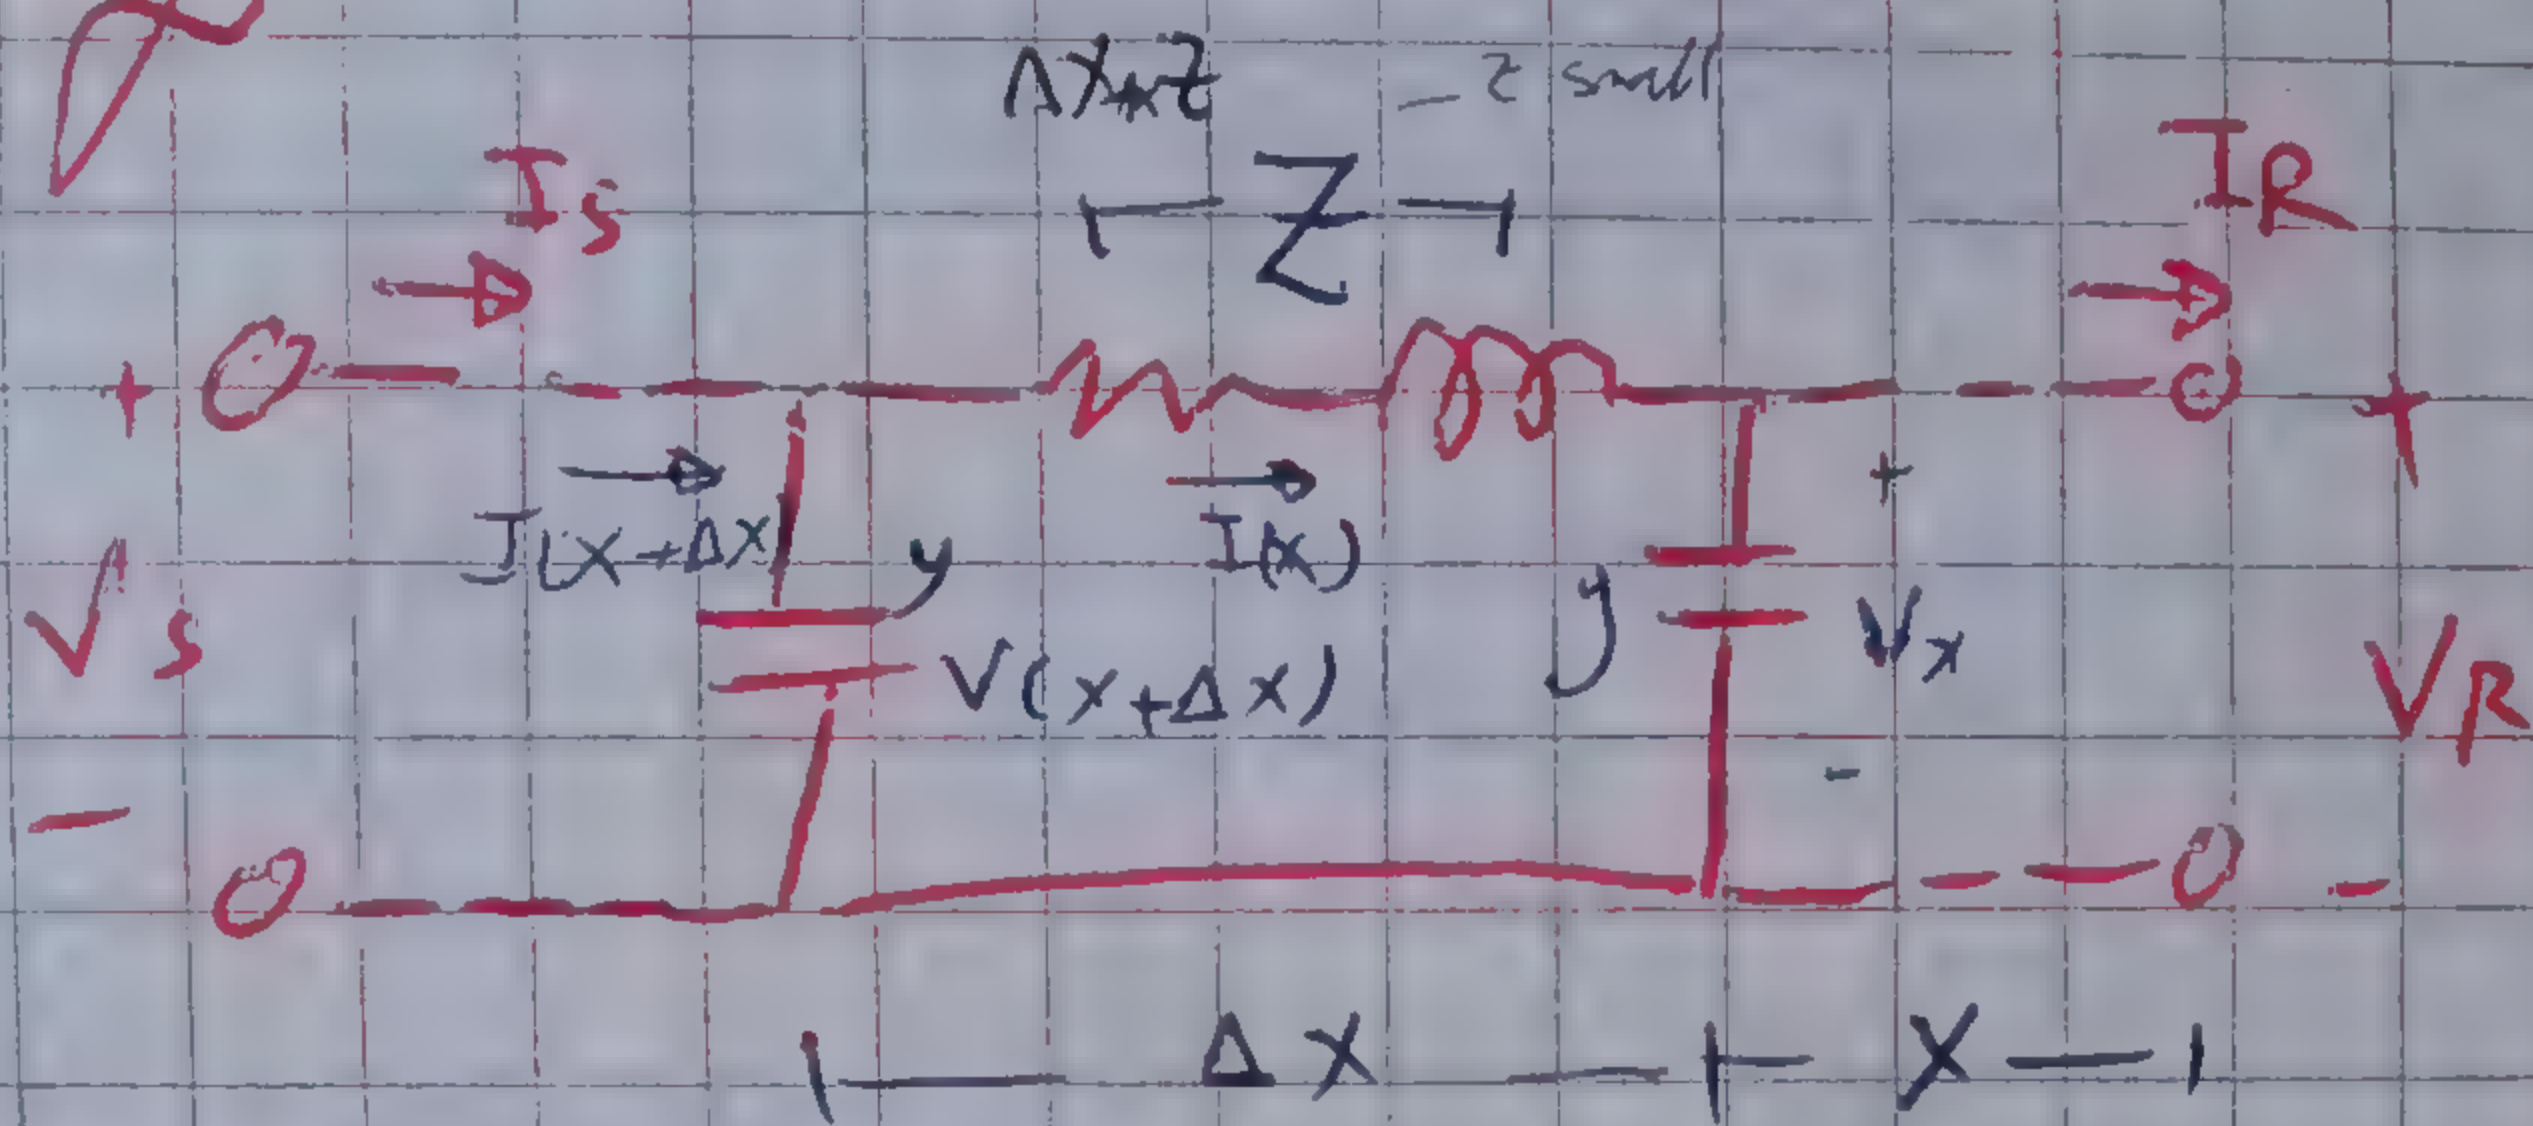 ΔX*Z - z small
Is
Z
IR
+
I(X+ΔX)
I(x)
+
y
y
Vs
V(X+ΔX)
Vx
VR
+
-
-
-
ΔX
X